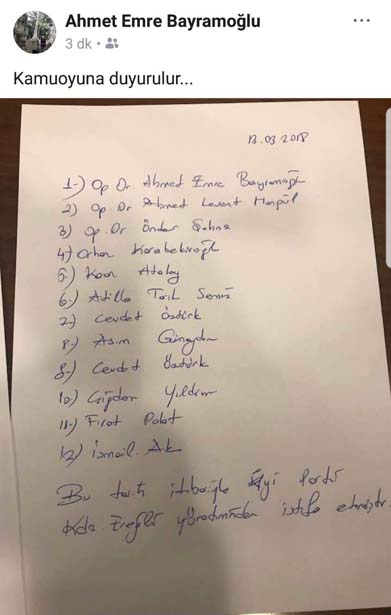 Ahmet Emre Bayramoğlu
3 dk
Kamuoyuna duyurulur...
13.03.2018
1-) Op Dr. Ahmed Emre Bayramoğlu
2) Op. Dr Ahmed Levent
3) Op. Dr Önder Şahne
4) Orhan Karabekiroğlu
5.) Kaan Atalay
6.) Atilla
7.) Cevdet Öztürk
8.) Asım
9.) Cevdet Öztürk
10.) Çiğdem Yıldırım
11-) Fırat Polat
12) İsmail Ak
Bu tarih itibariyle iyi Parti
Kdz. Ereğli yönetiminden istifa etmiştir.